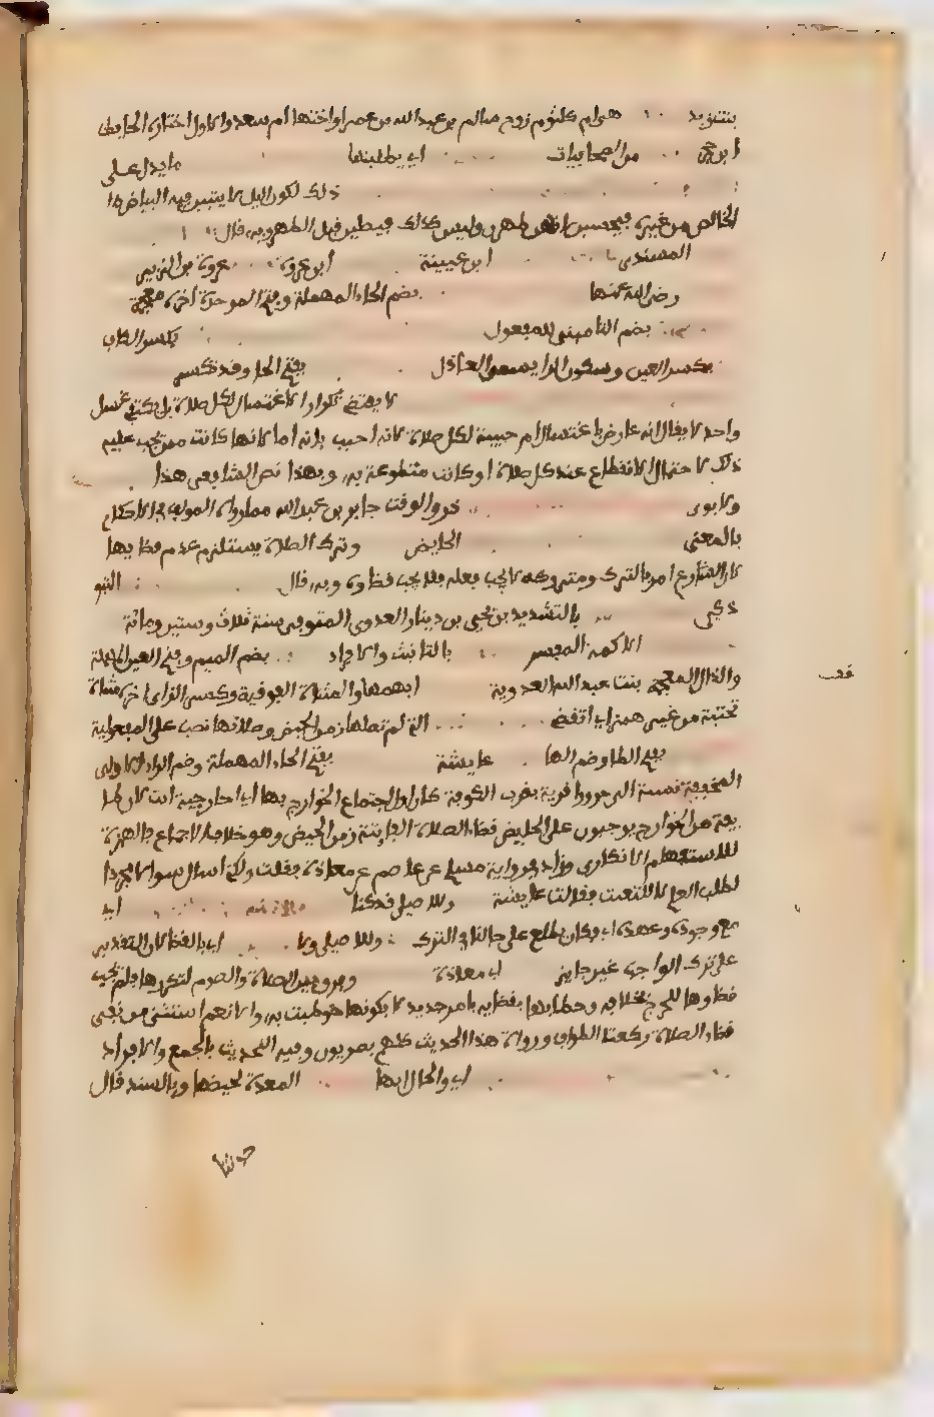 بنت زيد هي ام كلثوم زوج سالم بن عبد الله بن عمر او اختها ام سعد والاول اختاره الحافظ
ابن حجر من الصحابيات اي يطلبنها ما يدل على
ذلك لكون الليل لا يتبين فيه البياض
الخالص من غيره فيحسبن انهن طهرن وليس كذلك فيصلين قبل الطهر وبه قال
المسندي ابن عيينة ابن عروة عروة بن الزبير
رضي الله عنها بضم الحاء المهملة وفتح الموحدة اخره معجمة
بضم التا مبني للمفعول بكسر الكاف
بكسر العين وسكون الرا يسمى العاذل بفتح الحا وقد تكسر
لا يقتضي تكرار الاغتسال لكل صلاة بل يكفي غسل
واحد لا يقال انه عارض باغتسال ام حبيبة لكل صلاة لانه اجيب بانه اما لانها كانت ممن يجب عليه
ذلك لاحتمال الانقطاع عند كل صلاة او كانت متطوعة به وبهذا نص الشافعي هذا
ولابوي ذر والوقت جابر بن عبد الله مما رواه المولف في الاحكام
بالمعنى الحايض وترك الصلاة يستلزم عدم قضايها
لان الشارع امر بالترك ومتروكه لا يجب فعله فلا يجب قضاوه وبه قال التبو
ذكي بالتشديد بن يحيى بن دينار العدوي المتوفى سنة ثلاث وستين ومائة
الاكمه المفسر بالتانيث والافراد بضم الميم وفتح العين المهملة
والذال المعجمة بنت عبد الله العدوية ابهمها والمثناة الفوقية وكسر الزاي اخره مثناة
تحتية من غير همز اي اتقضي التي لم تصلها زمن الحيض وصلاتها نصب على المفعولية
بفتح الطا وضم الها عايشة بفتح الحاء المهملة وضم الراء الاولى
المخففة نسبة الى حرورا قرية بقرب الكوفة كان اول اجتماع الخوارج بها اي اخارجية انت لان طا
يفة من الخوارج يوجبون على الحايض قضاء الصلاة الفايتة زمن الحيض وهو خلاف الاجماع فالهمزة
للاستفهام الانكاري وزاد في رواية مسلم عن عاصم عن معاذة فقلت لا ولكني اسال سوالا مجردا
لطلب العلم لا للتعنت فقالت عايشة وللاصيلي قد كنا اي
مع وجوده وعهده اي وكان يطلع على حالنا في الترك وللاصيلي ولا اي بالقضا لان التقدير
على ترك الواجب غير جايز اي معاذة وفرق بين الصلاة والصوم لتكررها فلم يجب
قضاوها للحرج بخلافه وخطابها بقضايه بامر جديد لا بكونها خوطبت به اولا نعم استثني من نفي
قضاء الصلاة ركعتا الطواف ورواة هذا الحديث كلهم بصريون وفيه التحديث بالجمع والافراد
اي والحال انها المعدة لحيضها وبالسند قال
حدثنا